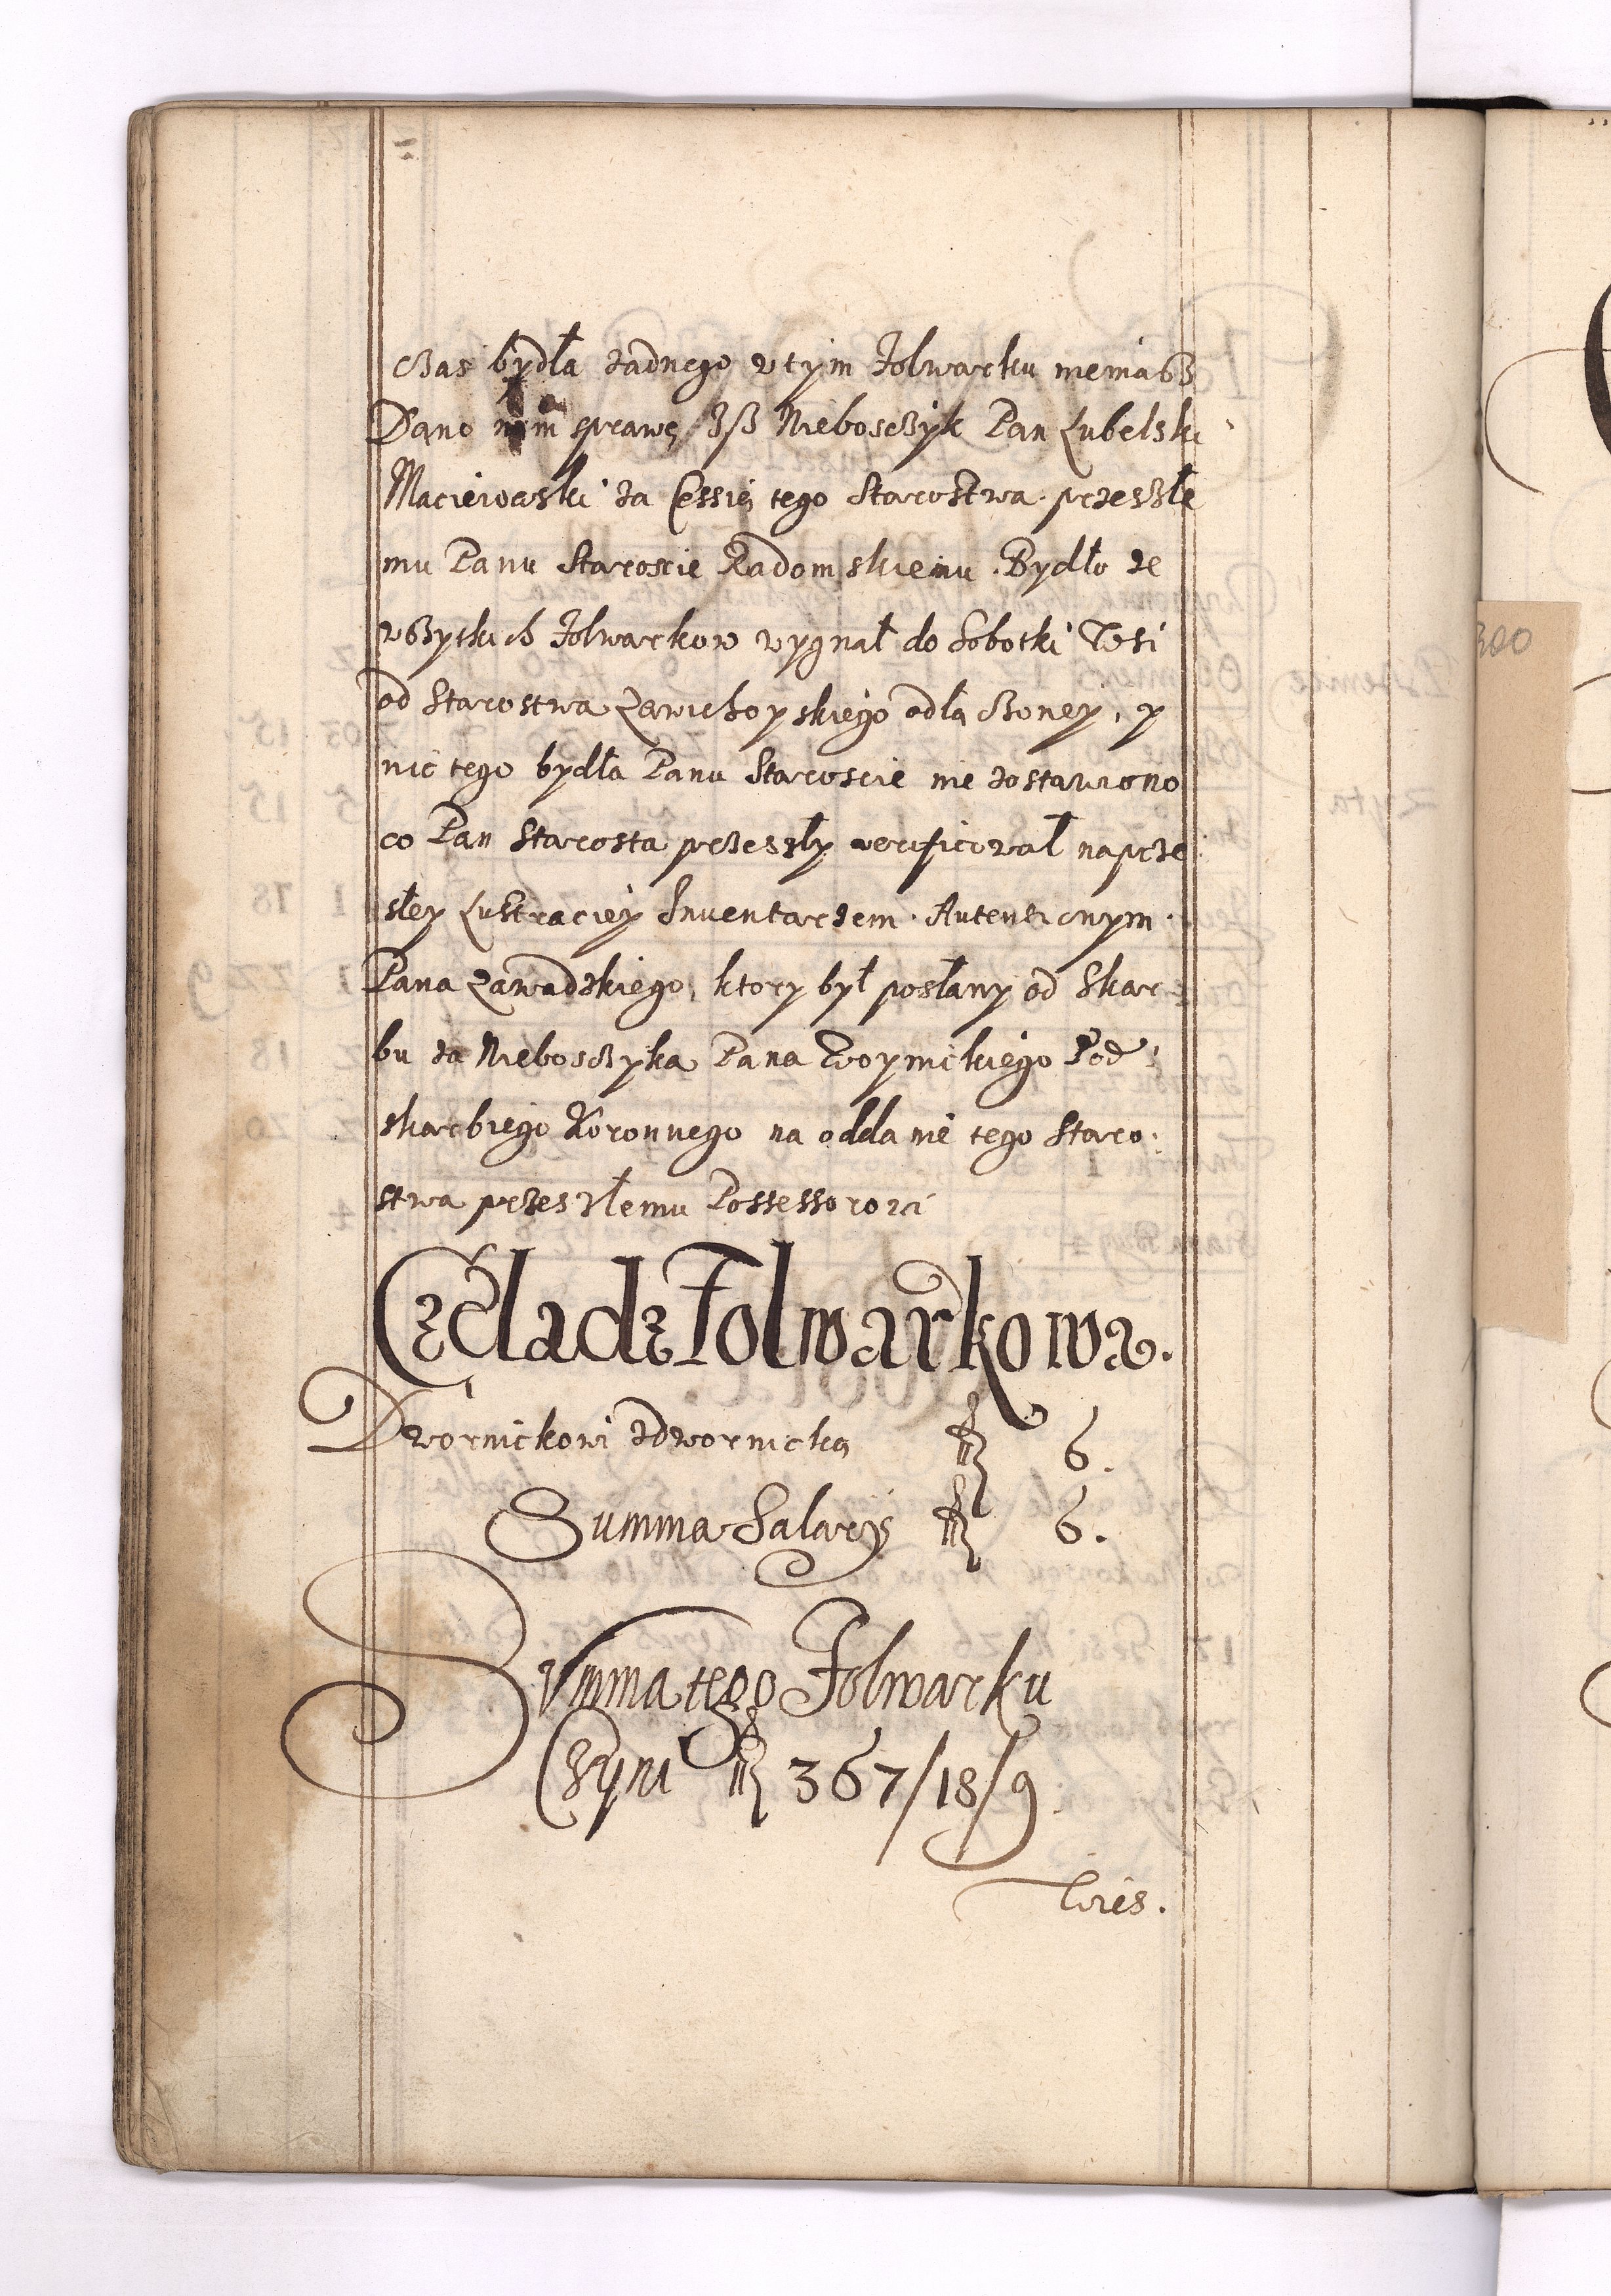 czas bydła zadnego wtym folwarku niemasz
Dano nam sprawę Isz Nieboszczyk Pan Lubelski
Macieiowski za Cessią tego Starostwa przeszłe
mu Panu Staroscie Radomskiemu. Bydło ze
wszytkich folwarkow wygnał do Sobotki Wsi
od Starostwa Zawichoyskiego odłączoney, y
nic tego bydła Panu Staroscie nie zostawiono
co Pan Starosta przeszły verificował naprze
słey Lustraciey Inventarzem Autenticznym
Pana Zawadzkiego, ktory był posłany od Skar
bu za Nieboszczyka Pana Woynickiego Pod
skarbiego Koronnego na oddanie tego Staro
stwa przeszłemu Possessorowi
Czeladz Folwarkowa.
Dwornickowi zdwornicką fl 6.
Summa Salarij fl 6.
Summa tego Folwarku
Czyni fl 367/18/9
Wies.
300